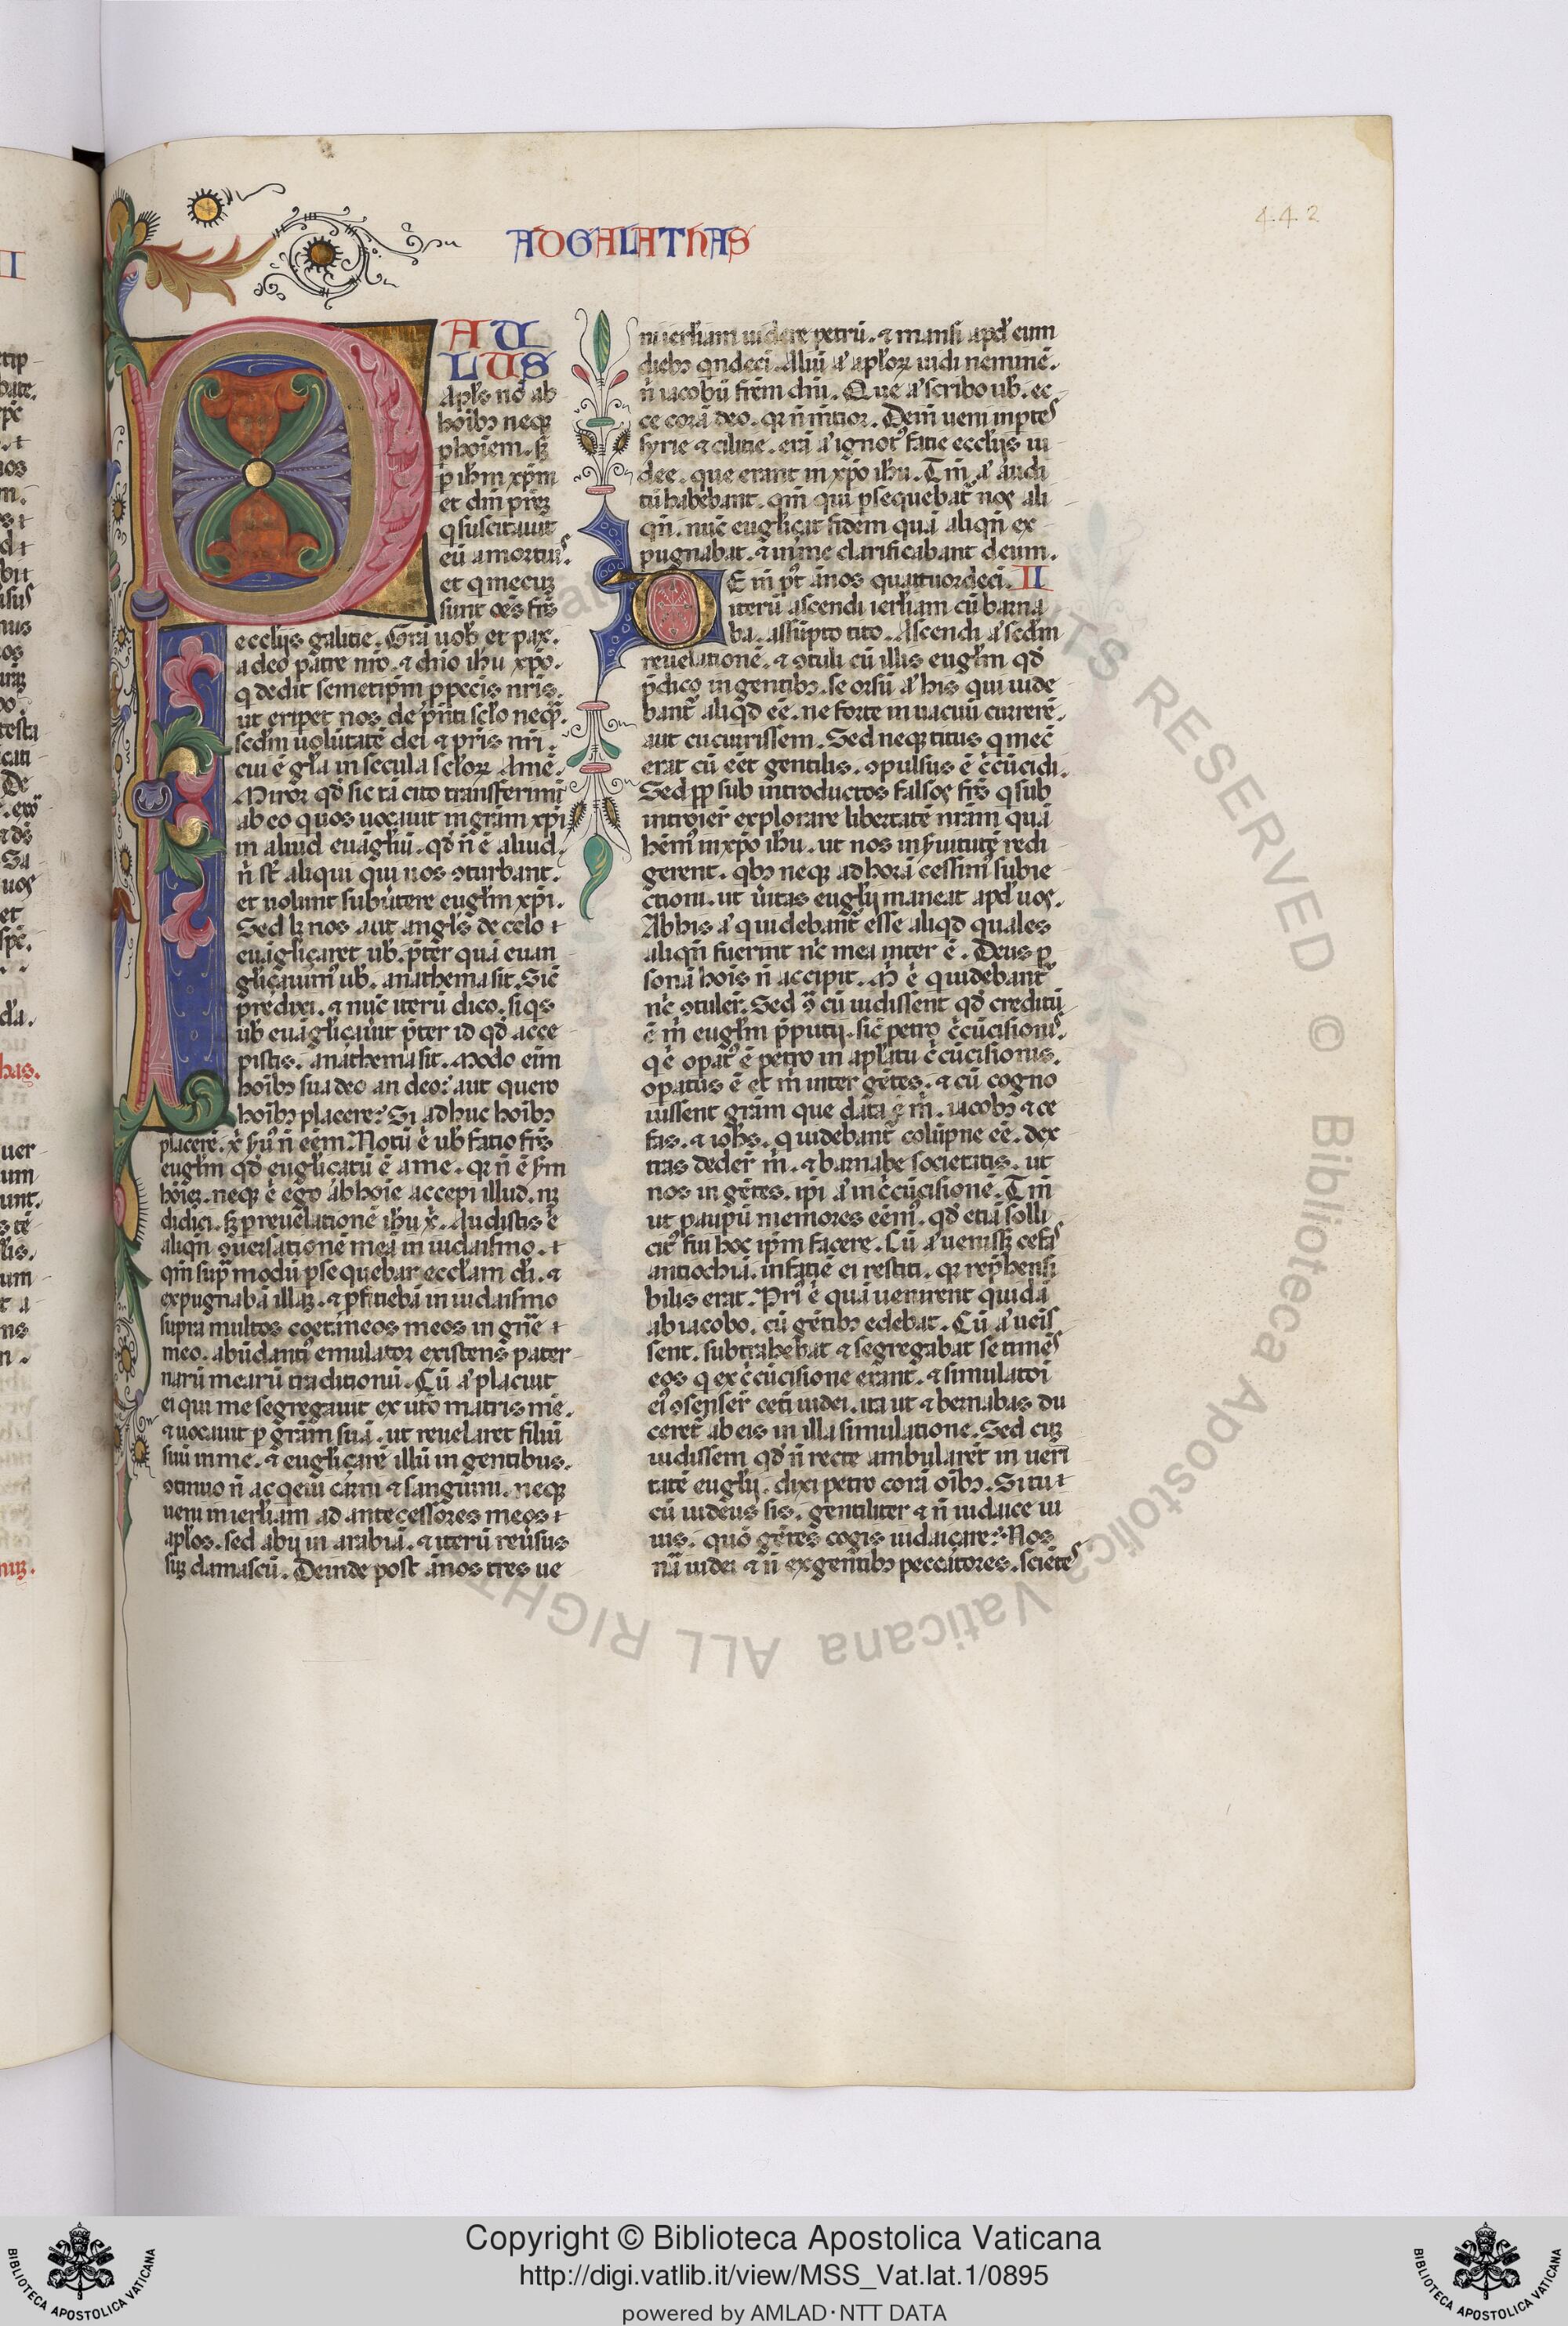 442
AD GALATHAS
P AU
LUS
Apl's nō ab
hoībꝫ neqꝫ
p hoīem. sꝫ
p ihm xpm
et dm prēꝫ
q suscitauit
eū a mortuis
et q mecuꝫ
sunt oēs frēs
eccl'ijs galitie. Gra uob' et pax.
a deo patre nrō. ⁊ dnō ihu xpō.
q dedit semetipm p peccīs nrīs.
ut eripet nos de pn̄ti sclo neqꝫ.
scdm uolūtatē dei ⁊ pris nri.
cui ē gl'a in secula sclorꝫ Amē.
Miror qd sic tā cito transferimī
ab eo q uos uocauit in grām xpi
in aliud euāgl'iū. qd n̄ ē aliud.
n̄ st aliqui qui uos ꝯturbant.
et uolunt subūtere eugl'm xpi.
Sed lꝫ nos aut angl's de celo
euāgliçaret ub'. pter quā euan
gliçauim' ub'. anathema sit. Sic
predixi. ⁊ nūc iterū dico. si qs
ub' euāgliçauit pter id qd acce
pistis. anathema sit. Modo eīm
hoībꝫ suadeo an deo? aut quero
hoībꝫ placere? Si adhuc hoībꝫ
placerē. x̄ s'uū n̄ eēm. Notū ē ub' fatio frēs
eugl'm qd euglicatū ē a me. qr n̄ ē s'm
hoīeꝫ. neqꝫ ē ego ab hoīe accepi illud. nꝫ
didici. sꝫ p reuelationē ihu x̄. Audistis ē
aliqn̄ ꝯuersationē meā in iudaismo.
qm̄ sup modū psequebar eccl'am di. ⁊
expugnabā illaꝫ. ⁊ pfitiebā in iudaismo
supra multos coetaneos meos in gn̄e
meo. abūdanti' emulator existens pater
narū mearū traditionū. Cū a' placuit
ei qui me segregauit ex utō matris mē.
⁊ uocauit p grām suā. ut reuelaret filiū
suū in me. ⁊ euglicarē illū in gentibus.
ꝯtinuo n̄ acqeui carni ⁊ sanguini. neqꝫ
ueni in ierl'iam ad antecessores meos
apl'os. sed abij in arabiā. ⁊ iterū reūsus
sūꝫ damascū. Deinde post ānos tres ue
ni ierl'iam uidere petrū. ⁊ mansi apd' eum
diebꝫ qndeci. Aliū a' apl'orꝫ uidi neminē.
n̄ iacobū frēm dni. Que a' scribo ub'. ec
ce corā deo. qr n̄ mētior. Dein ueni in ptes
syrie ⁊ cilitie. erā a' ignot' fatie eccl'ijs iu
dee. que erant in xpō ihu. Tm̄ a' audi
tū habebant. qm̄ qui psequebat' nos ali
qn̄. nūc euglicat fidem quā aliqn̄ ex
pugnabat. ⁊ in me clarificabant deum.
DEin pt ānos quattuordeci. II
iterū ascendi ierl'iam cū barna
ba. assūpto tito. Ascendi a' scdm
reuelationē. ⁊ ꝯtuli cū illis eugl'm qd
pdico in gentibꝫ. seorsū a' his qui uide
bant' aliqd eē. ne forte in uacuū currerē.
aut cucurrissem. Sed neqꝫ titus q mecū
erat cū eēt gentilis. ꝯpulsus ē c̄cūcidi.
Sed pp subintroductos falsos frēs q sub
introier explorare libertatē nrām quā
hēm' in xpo ihu. ut nos in s'uitutē redi
gerent. qbꝫ neqꝫ ad horā cessim' subie
ctioni. ut ūitas eugl'ij maneat apd' uos.
Ab his a' qui uidebant' esse aliqd quales
aliqn̄ fuerint n'c mea inter ē. Deus p
sonā hoīs n̄ accipit. M̄ ē q uidebant'
n'c ꝯtuler̄. Sed ꝯ cū uidissent qd creditū
ē m' eugl'm pputij. sic petro c̄cūcisionis.
q ē opat' ē petro in apl'atu c̄cūcisionis.
opatus ē et m' inter gētes. ⁊ cū cogno
uissent grām que data ē m'. iacobꝫ ⁊ ce
fas. ⁊ iohs. q uidebant' colūpne eē. dex
tras deder̄ m'. ⁊ barnabe societatis. ut
nos in gētes. ipi a' in c̄cūcisionē. Tm̄
ut paupū memores eēm'. qd etiā solli
cit' fui hoc ipm facere. Cū a' uenissꝫ cefas
antiochiā. in fatiē ei restiti. qr rephensi
bilis erat. Pri' ē quā uenirent quidā
ab iacobo. cū gētibꝫ edebat. Cū a' ueis
sent. subtrahebat ⁊ segregabat se timēs
eos q ex c̄cūcisione erant. ⁊ simulatōi
ei' ꝯsenser̄ ceti iudei. ita ut ⁊ bernabas du
ceret' ab eis in illa simulatione. Sed cūꝫ
uidissem qd n̄ recte ambularēt in ueri
tatē eugl'ij. dixi petro corā oībꝫ. Si tu
cū iudeus sis. gentiliter ⁊ n̄ iudaice ui
uis. quō gētes cogis iudaiçare? Nos
nā iudei ⁊ n̄ ex gentibꝫ peccatores. sciētes
Copyright © Biblioteca Apostolica Vaticana
http://digi.vatlib.it/view/MSS_Vat.lat.1/0895
powered by AMLAD·NTT DATA